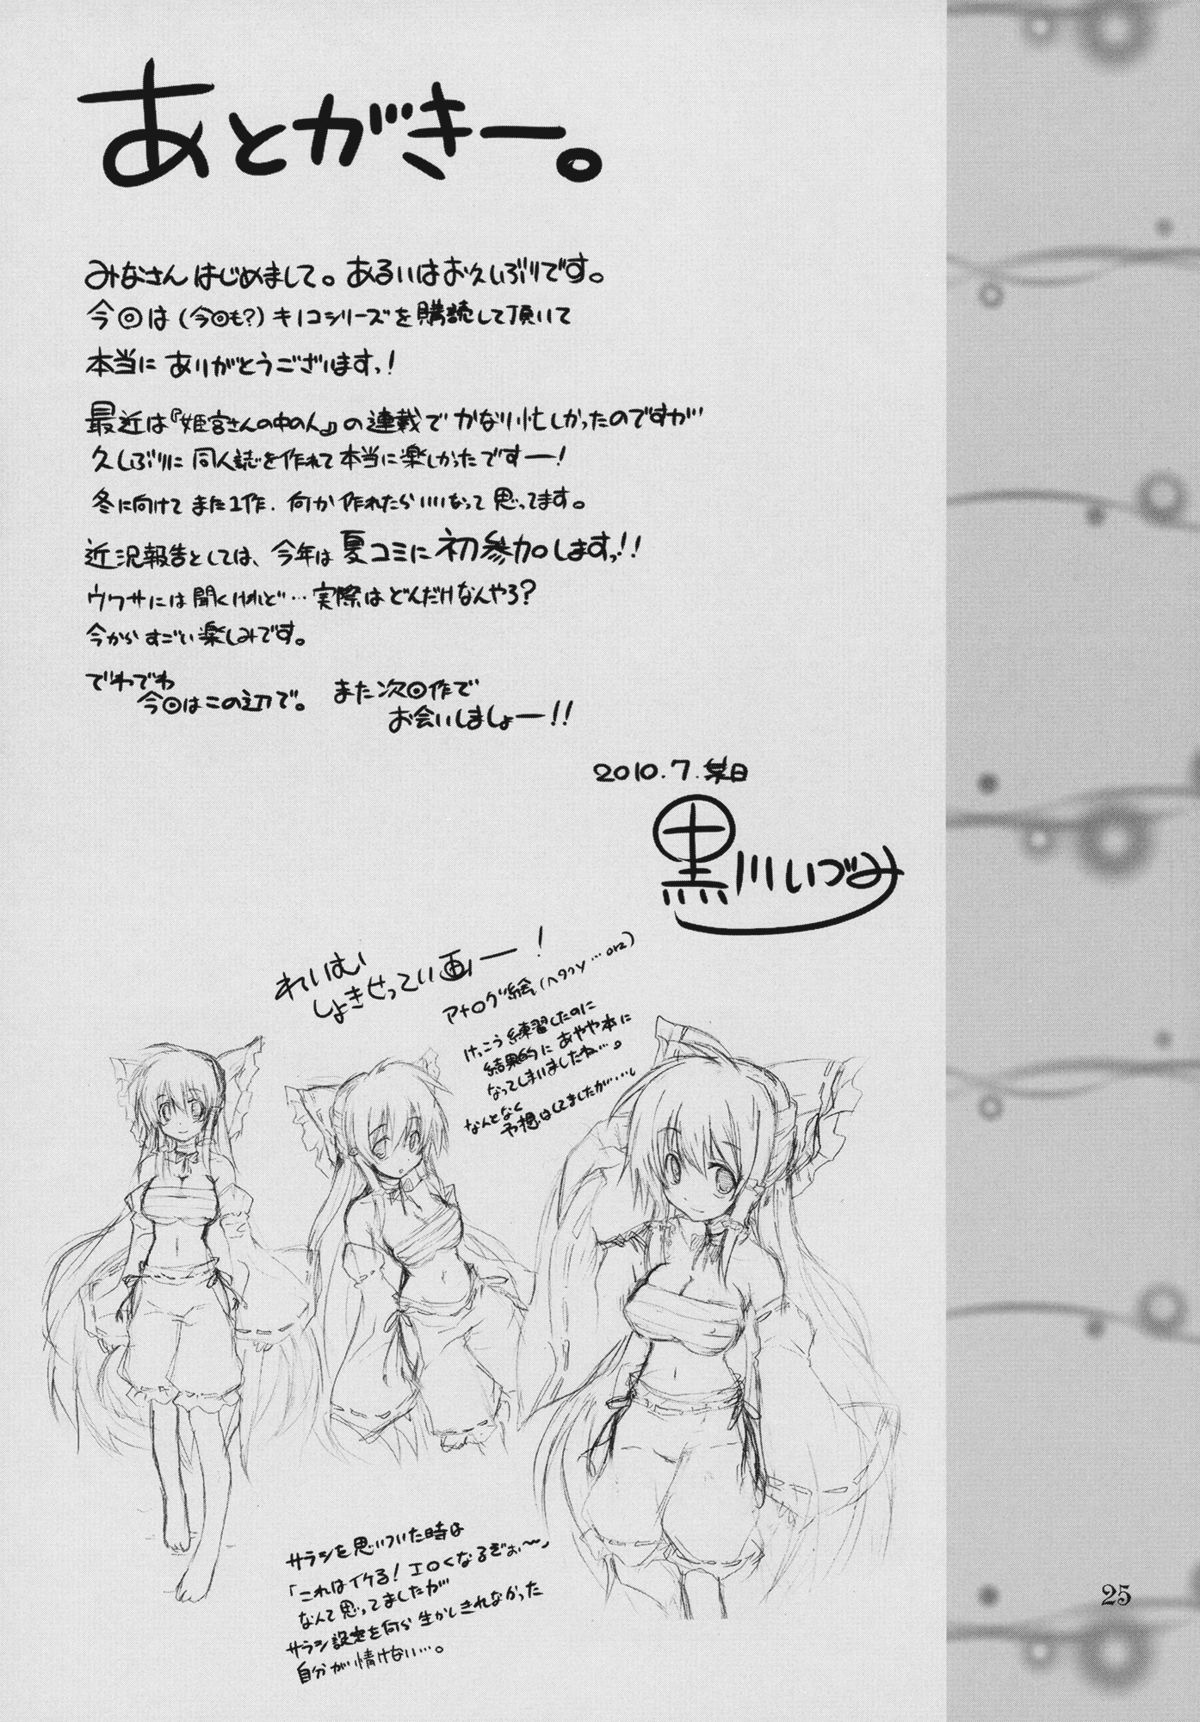 あとがきー。
みなさん はじめまして。あるいはお久しぶりです。
今回は(今回も?)キノコシリーズを購読して頂いて
本当に ありがとうございますっ!
最近は『姫宮さんの中の人』の連載で かなり忙しかったのですが
久しぶりに 同人誌を作れて本当に楽しかったですー!
冬に向けて また1作、何か作れたらいいなって思ってます。
近況報告としては、今年は夏コミに初参加しますっ!!
ウワサには聞くけれど…実際はどんだけなんやろ?
今からすごい楽しみです。
でわでわ
今回はこの辺で。 また次回作で
お会いしましょー!!
2010.7.某日
黒川いづみ
れいむ
しょきせってい画ー!
アナログ絵(ヘタクソ…orz)
けっこう練習したのに
結果的にあやや本に
なってしまいましたね…。
なんとなく
予想はしてましたが……。
サラシを思いついた時は
「これはイケる!エロくなるぞぉ〜」
なんて思ってましたが
サラシ設定を何ら生かしきれなかった
自分が情けない…。
25